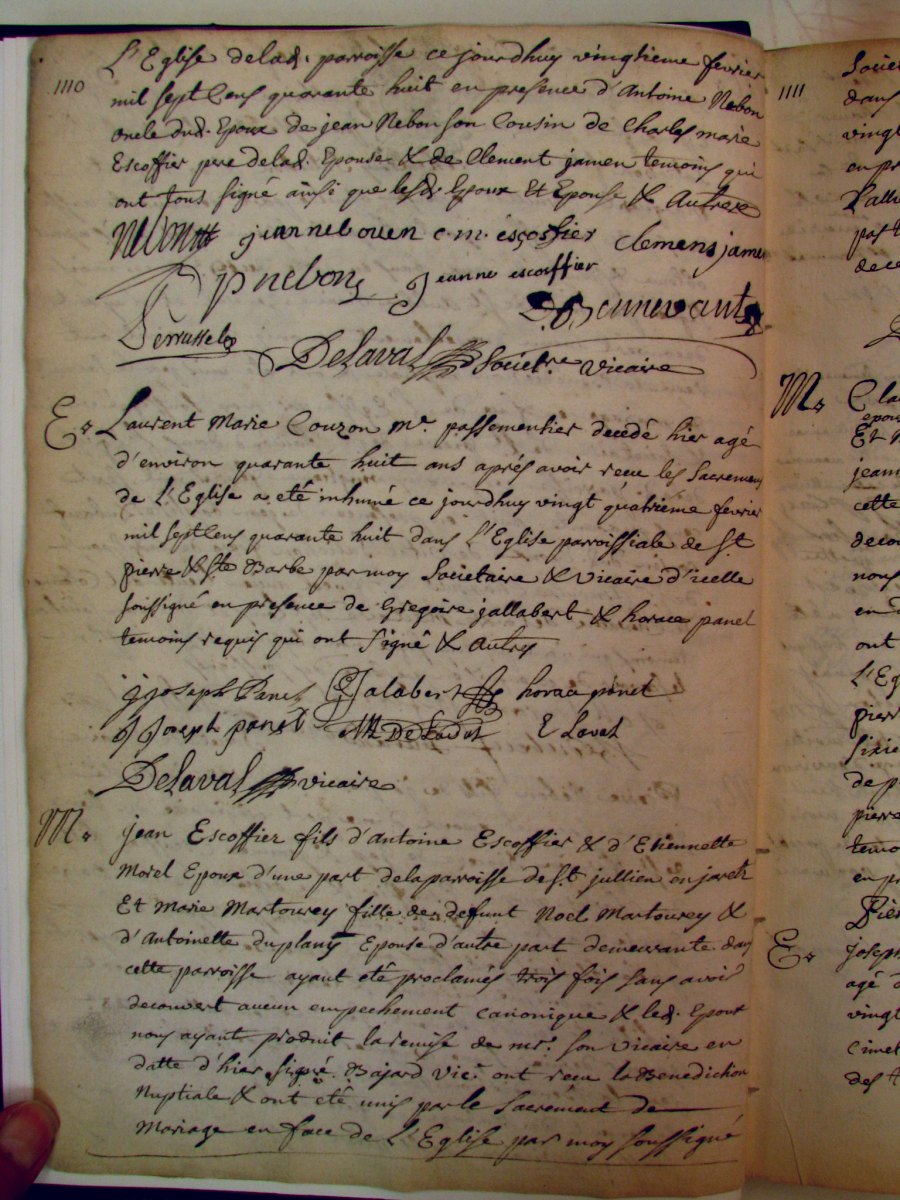 1110
L'Eglise delad. parroisse ce jourdhuy vingtieme fevrier
mil sept Cens quarante huit en presence d'Antoine Nebon
oncle dud. Epoux de jean Nebon son Cousin de Charles marie
Escoffier pere delad. Epouse & de Clement jamen temoins qui
ont tous signé ainsi que lesd. Epoux Et Epouse & Autres
Nebon jean nebouen c. m. escoffier clemens jamen
pnebon Jeanne escoffier
Bennevant
Perrussel
Delaval Societre Vicaire
E. Laurent Marie Couzon Mr. passementier decedé hier agé
d'environ quarante huit ans aprés avoir reçu les Sacremens
de L'Eglise a eté inhumé ce jourdhuy vingt quatrieme fevrier
mil sept Cens quarante huit dans L'Eglise parroissiale de St.
pierre & Ste Barbe par moy Societaire & Vicaire d'icelle
soussigné en presence de Gregoire jallabert & horace panel
temoins requis qui ont signé & Autres
joseph Penel Jalabert horace penel
J Joseph panel E Lavel
Delaval vicaire
M. jean Escoffier fils d'antoine Escoffier & d'Etiennette
Morel Epoux d'une part delaparroisse de St. jullien en jarets
Et Marie Martourey fille de defunt Noel Martourey &
d'Antoinette duplany Epouse d'autre part demeurante dans
cette parroisse ayant eté proclamés trois fois sans avoir
decouvert aucun empechement canonique & led. Epoux
nous ayant produit la remise de mr. son Vicaire en
datte d'hier signé. Bajard Vic. ont reçu la Benediction
Nuptiale & ont eté unis par le Sacrement de
Mariage en face de L'Eglise par moy soussigné
1111
Societ
dans
vingt
en pr
dece
M. Cla
epou
Et
jean
cette
decou
nous
en
ont
L'Eg
pierr
sixie
de p
pierre
temo
en pr
E. joseph
agé d
vingt
cimet
des